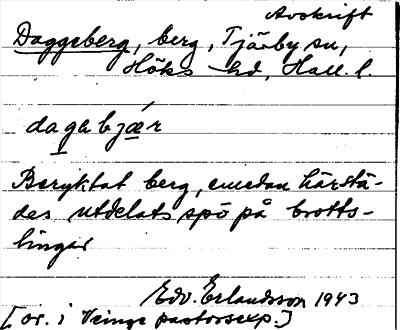 Avskrift
Daggeberg, berg, Tjärby sn,
Höks hd, Hall. l.
dagabjær
Beryktat berg, emedan härstä-
des utdelats spö på brotts-
lingar
Edv. Erlandsson 1943
[or. i Veinge pastorsexp.]